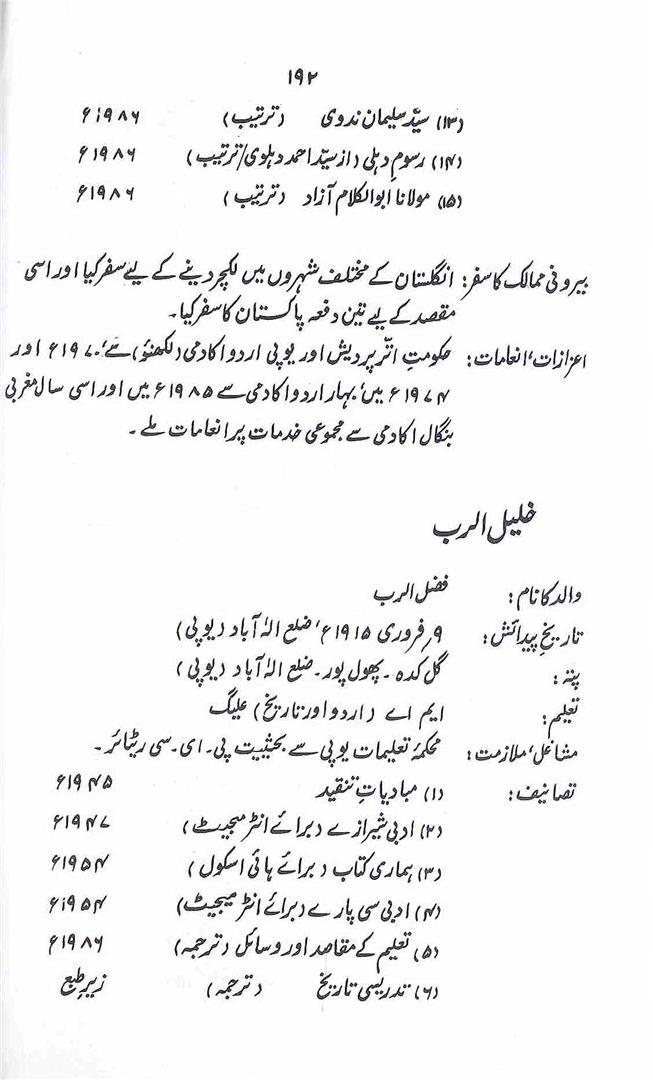 ۱۹۲
(۱۳) سیّد سلیمان ندوی (ترتیب) ۱۹۸۶ء
(۱۴) رسومِ دہلی (از سیّد احمد دہلوی/ترتیب) ۱۹۸۶ء
(۱۵) مولانا ابوالکلام آزاد (ترتیب) ۱۹۸۶ء
بیرونی ممالک کا سفر: انگلستان کے مختلف شہروں میں لکچر دینے کے لیے سفر کیا اور اسی
مقصد کے لیے تین دفعہ پاکستان کا سفر کیا۔
اعزازات، انعامات: حکومتِ اتّر پردیش اور یوپی اردو اکادمی (لکھنؤ) سے، ۱۹۷۰ء اور
۱۹۷۴ء میں، بہار اردو اکادمی سے ۱۹۸۵ء میں اور اسی سال مغربی
بنگال اکادمی سے مجموعی خدمات پر انعامات ملے۔
خلیل الرب
والد کا نام: فضل الرب
تاریخِ پیدائش: ۹؍فروری ۱۹۱۵ء، ضلع الہٰ آباد (یوپی)
پتہ: گل کدہ۔ پھول پور۔ ضلع الہٰ آباد (یوپی)
تعلیم: ایم اے (اردو اور تاریخ) علیگ
مشاغل، ملازمت: محکمۂ تعلیمات یوپی سے بحیثیت پی۔ ای۔ سی ریٹائر۔
تصانیف: (۱) مبادیاتِ تنقید ۱۹۴۵ء
(۲) ادبی شیرازے (برائے انٹرمیجیٹ) ۱۹۴۷ء
(۳) ہماری کتاب (برائے ہائی اسکول) ۱۹۵۴ء
(۴) ادبی سی پارے (برائے انٹرمیجیٹ) ۱۹۵۴ء
(۵) تعلیم کے مقاصد اور وسائل (ترجمہ) ۱۹۸۶ء
(۶) تدریسی تاریخ (ترجمہ) زیرِ طبع